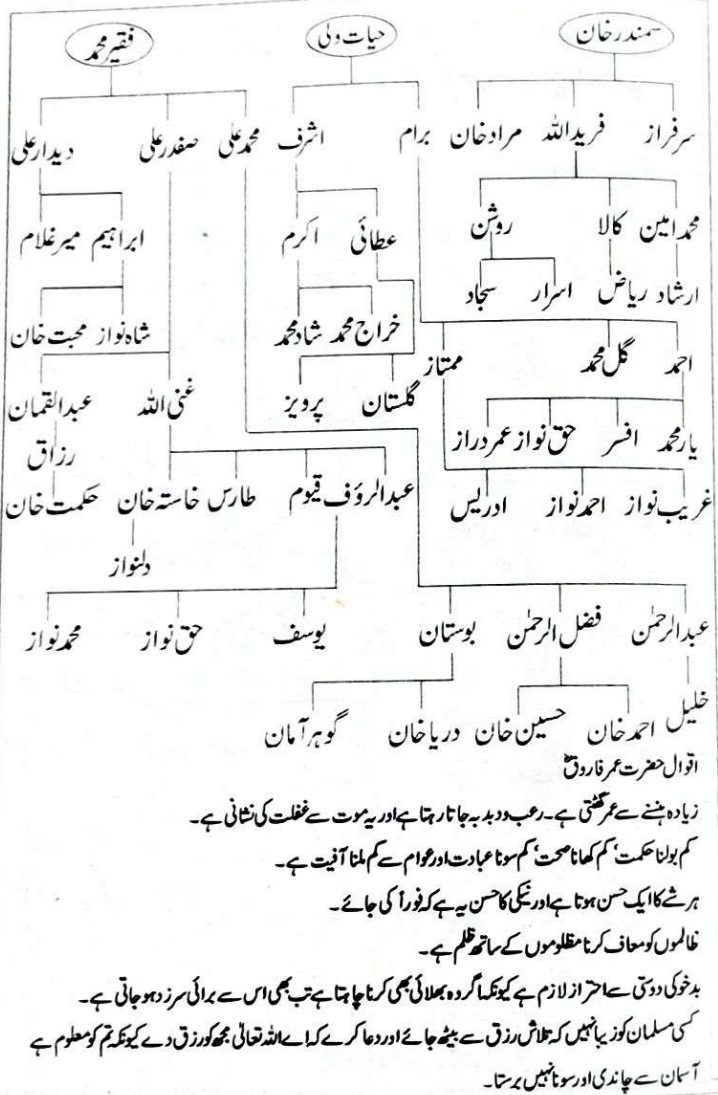 سمندرخان حیات ولی فقیر محمد
سرفراز فریداللہ مرادخان برام اشرف محمدعلی صفدرعلی دیدارعلی
محمدامین کالا روشن عطائی اکرم ابراہیم میرغلام
ارشاد ریاض اسرار سجاد خراج محمد شادمحمد شاہ نواز محبت خان
احمد گل محمد ممتاز گلستان پرویز غنی اللہ عبدالقمان
یارمحمد افسر حق نواز عمردراز رزاق
غریب نواز احمدنواز ادریس عبدالرؤف قیوم طارس خاستہ خان حکمت خان
دلنواز
عبدالرحمٰن فضل الرحمٰن بوستان یوسف حق نواز محمدنواز
خلیل احمدخان حسین خان دریاخان گوہرآمان
اقوال حضرت عمر فاروقؓ
زیادہ ہنسنے سے عمر گھٹتی ہے۔ رعب ودبدبہ جاتا رہتا ہے اور یہ موت سے غفلت کی نشانی ہے۔
کم بولنا حکمت، کم کھانا صحت، کم سونا عبادت اور عوام سے کم ملنا آفیت ہے۔
ہر شے کا ایک حسن ہوتا ہے اور نیکی کا حسن یہ ہے کہ فوراً کی جائے۔
ظالموں کو معاف کرنا مظلوموں کے ساتھ ظلم ہے۔
بدخو کی دوستی سے احتراز لازم ہے کیونکہ اگر وہ بھلائی بھی کرنا چاہتا ہے تب بھی اس سے برائی سرزد ہو جاتی ہے۔
کسی مسلمان کو زیبا نہیں کہ تلاش رزق سے بیٹھ جائے اور دعا کرے کہ اے اللہ تعالیٰ مجھ کو رزق دے کیونکہ تم کو معلوم ہے
آسمان سے چاندی اور سونا نہیں برستا۔